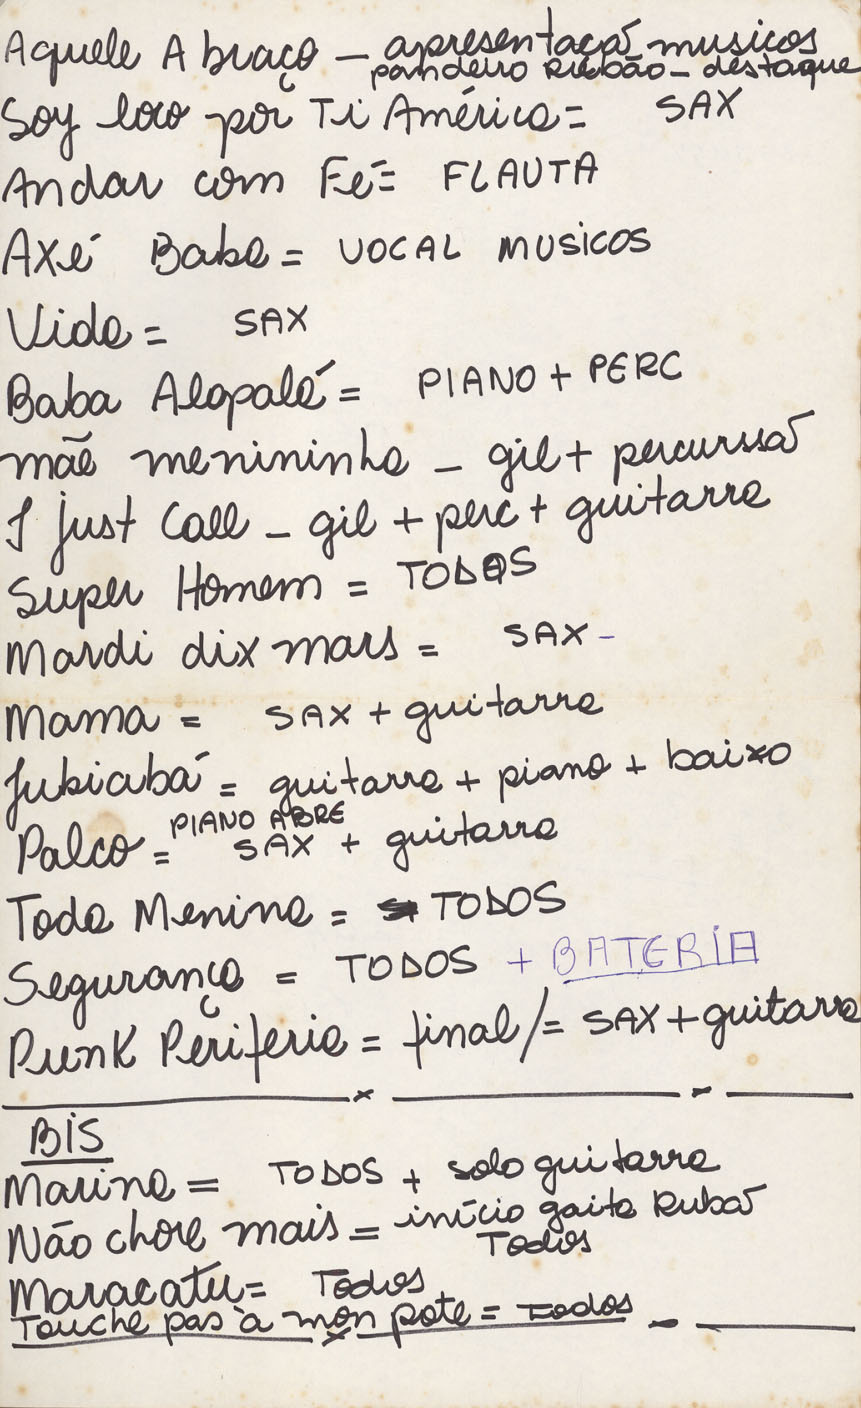 Aquele Abraço — apresentaçã musicos
pandeiro Rubão - destaque
Soy loco por Ti América = SAX
Andar com Fé = FLAUTA
Axé Baba = VOCAL MUSICOS
Vida = SAX
Baba Alapalá = PIANO + PERC
mãe menininha - gil + percurssã
I just Call - gil + perc + guitarra
Super Homem = TODOS
Mardi dix mars = SAX -
Mama = SAX + guitarra
Jubiabá = guitarra + piano + baixo
PIANO ABRE
Palco = SAX + guitarra
Toda Menina = TODOS
Segurança = TODOS + BATERIA
Punk Periferia = final/= SAX + guitarra
BIS
Marina = TODOS + solo guitarra
Não chore mais = início gaita Rubã
Todos
Maracatu = Todos
Touche pas à mon pote = Todos